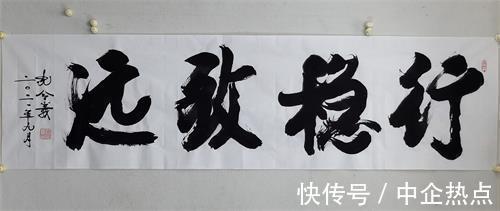 行稳致远
二〇二一年九月
快传号 / 中企热点